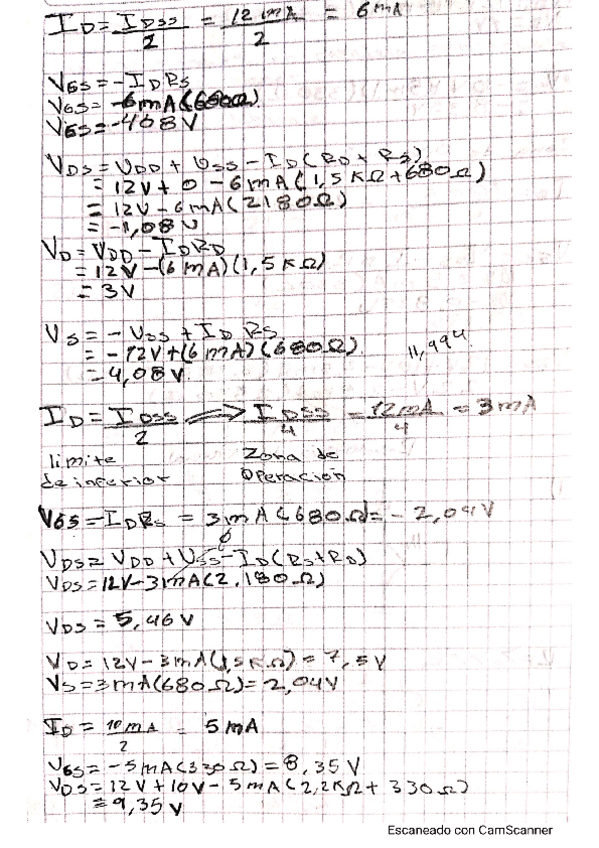 ID = IDSS/2 = 12mA/2 = 6mA
VGS = -IDRS
VGS = -6mA(680Ω)
VGS = -408V
VDS = VDD + VSS - ID(RD + RS)
= 12V + 0 - 6mA(1,5KΩ + 680Ω)
= 12V - 6mA(2180Ω)
= -1,08V
VD = VDD - IDRD
= 12V - (6mA)(1,5KΩ)
= 3V
VS = -VSS + IDRS
= -12V + (6mA)(680Ω)
= 4,08V
11,994
ID = IDSS/2 ⟹ IDSS/4 = 12mA/4 = 3mA
limite Zona de
de inferior Operación
VGS = IDRS = 3mA(680Ω) = -2,04V
VDS = VDD + VSS - ID(RS + RD)
VDS = 12V - 3mA(2,180Ω)
VDS = 5,46V
VD = 12V - 3mA(1,5KΩ) = 7,5V
VS = 3mA(680Ω) = 2,04V
ID = 10mA/2 = 5mA
VGS = -5mA(330Ω) = 8,35V
VDS = 12V + 10V - 5mA(2,2KΩ + 330Ω)
= 9,35V
Escaneado con CamScanner